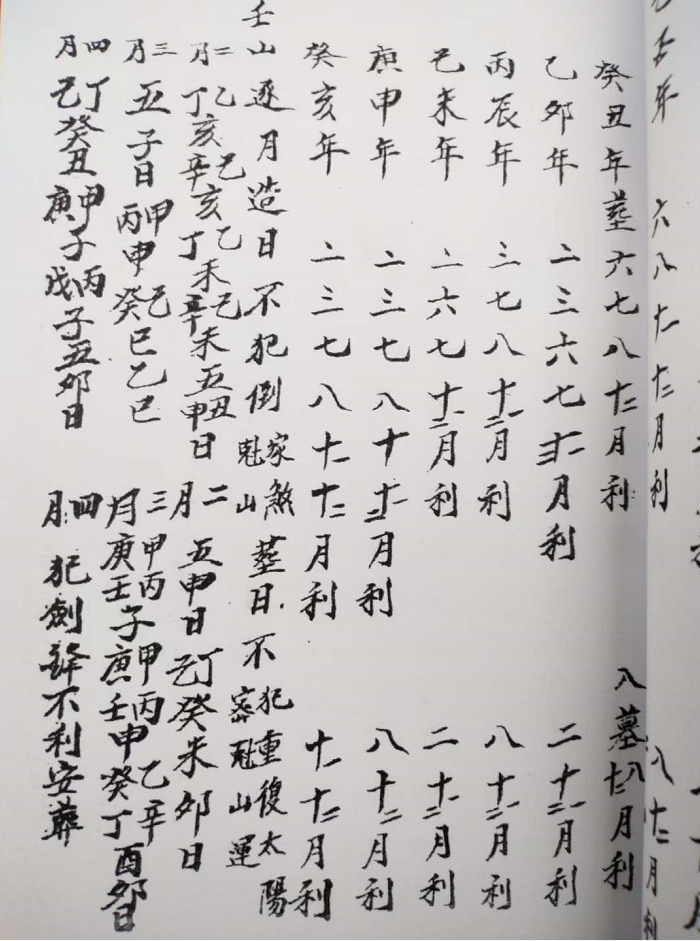 年 六八十十二月利 八十二月利
癸丑年葬六七八十二月利 入墓八十二月利
乙卯年 二三六七十二月利 二十二月利
丙辰年 三七八十二月利 八十二月利
己未年 二六七十二月利 二十二月利
庚申年 二三七八十十二月利 八十二月利
癸亥年 二三七八十一十二月利 十一十二月利
壬山逐月造日不犯倒家煞尅山葬日不犯重復太陽尅山運
二月乙丁亥己辛亥乙丁未己辛未五丑申日
三月五子日甲丙申己癸巳乙巳
四月丁己癸丑甲庚子丙戊子丑卯日
二月五申日丁己癸未卯日
三月甲丙庚壬子甲丙庚壬申乙辛癸丁酉卯日
四月犯劍鋒不利安葬